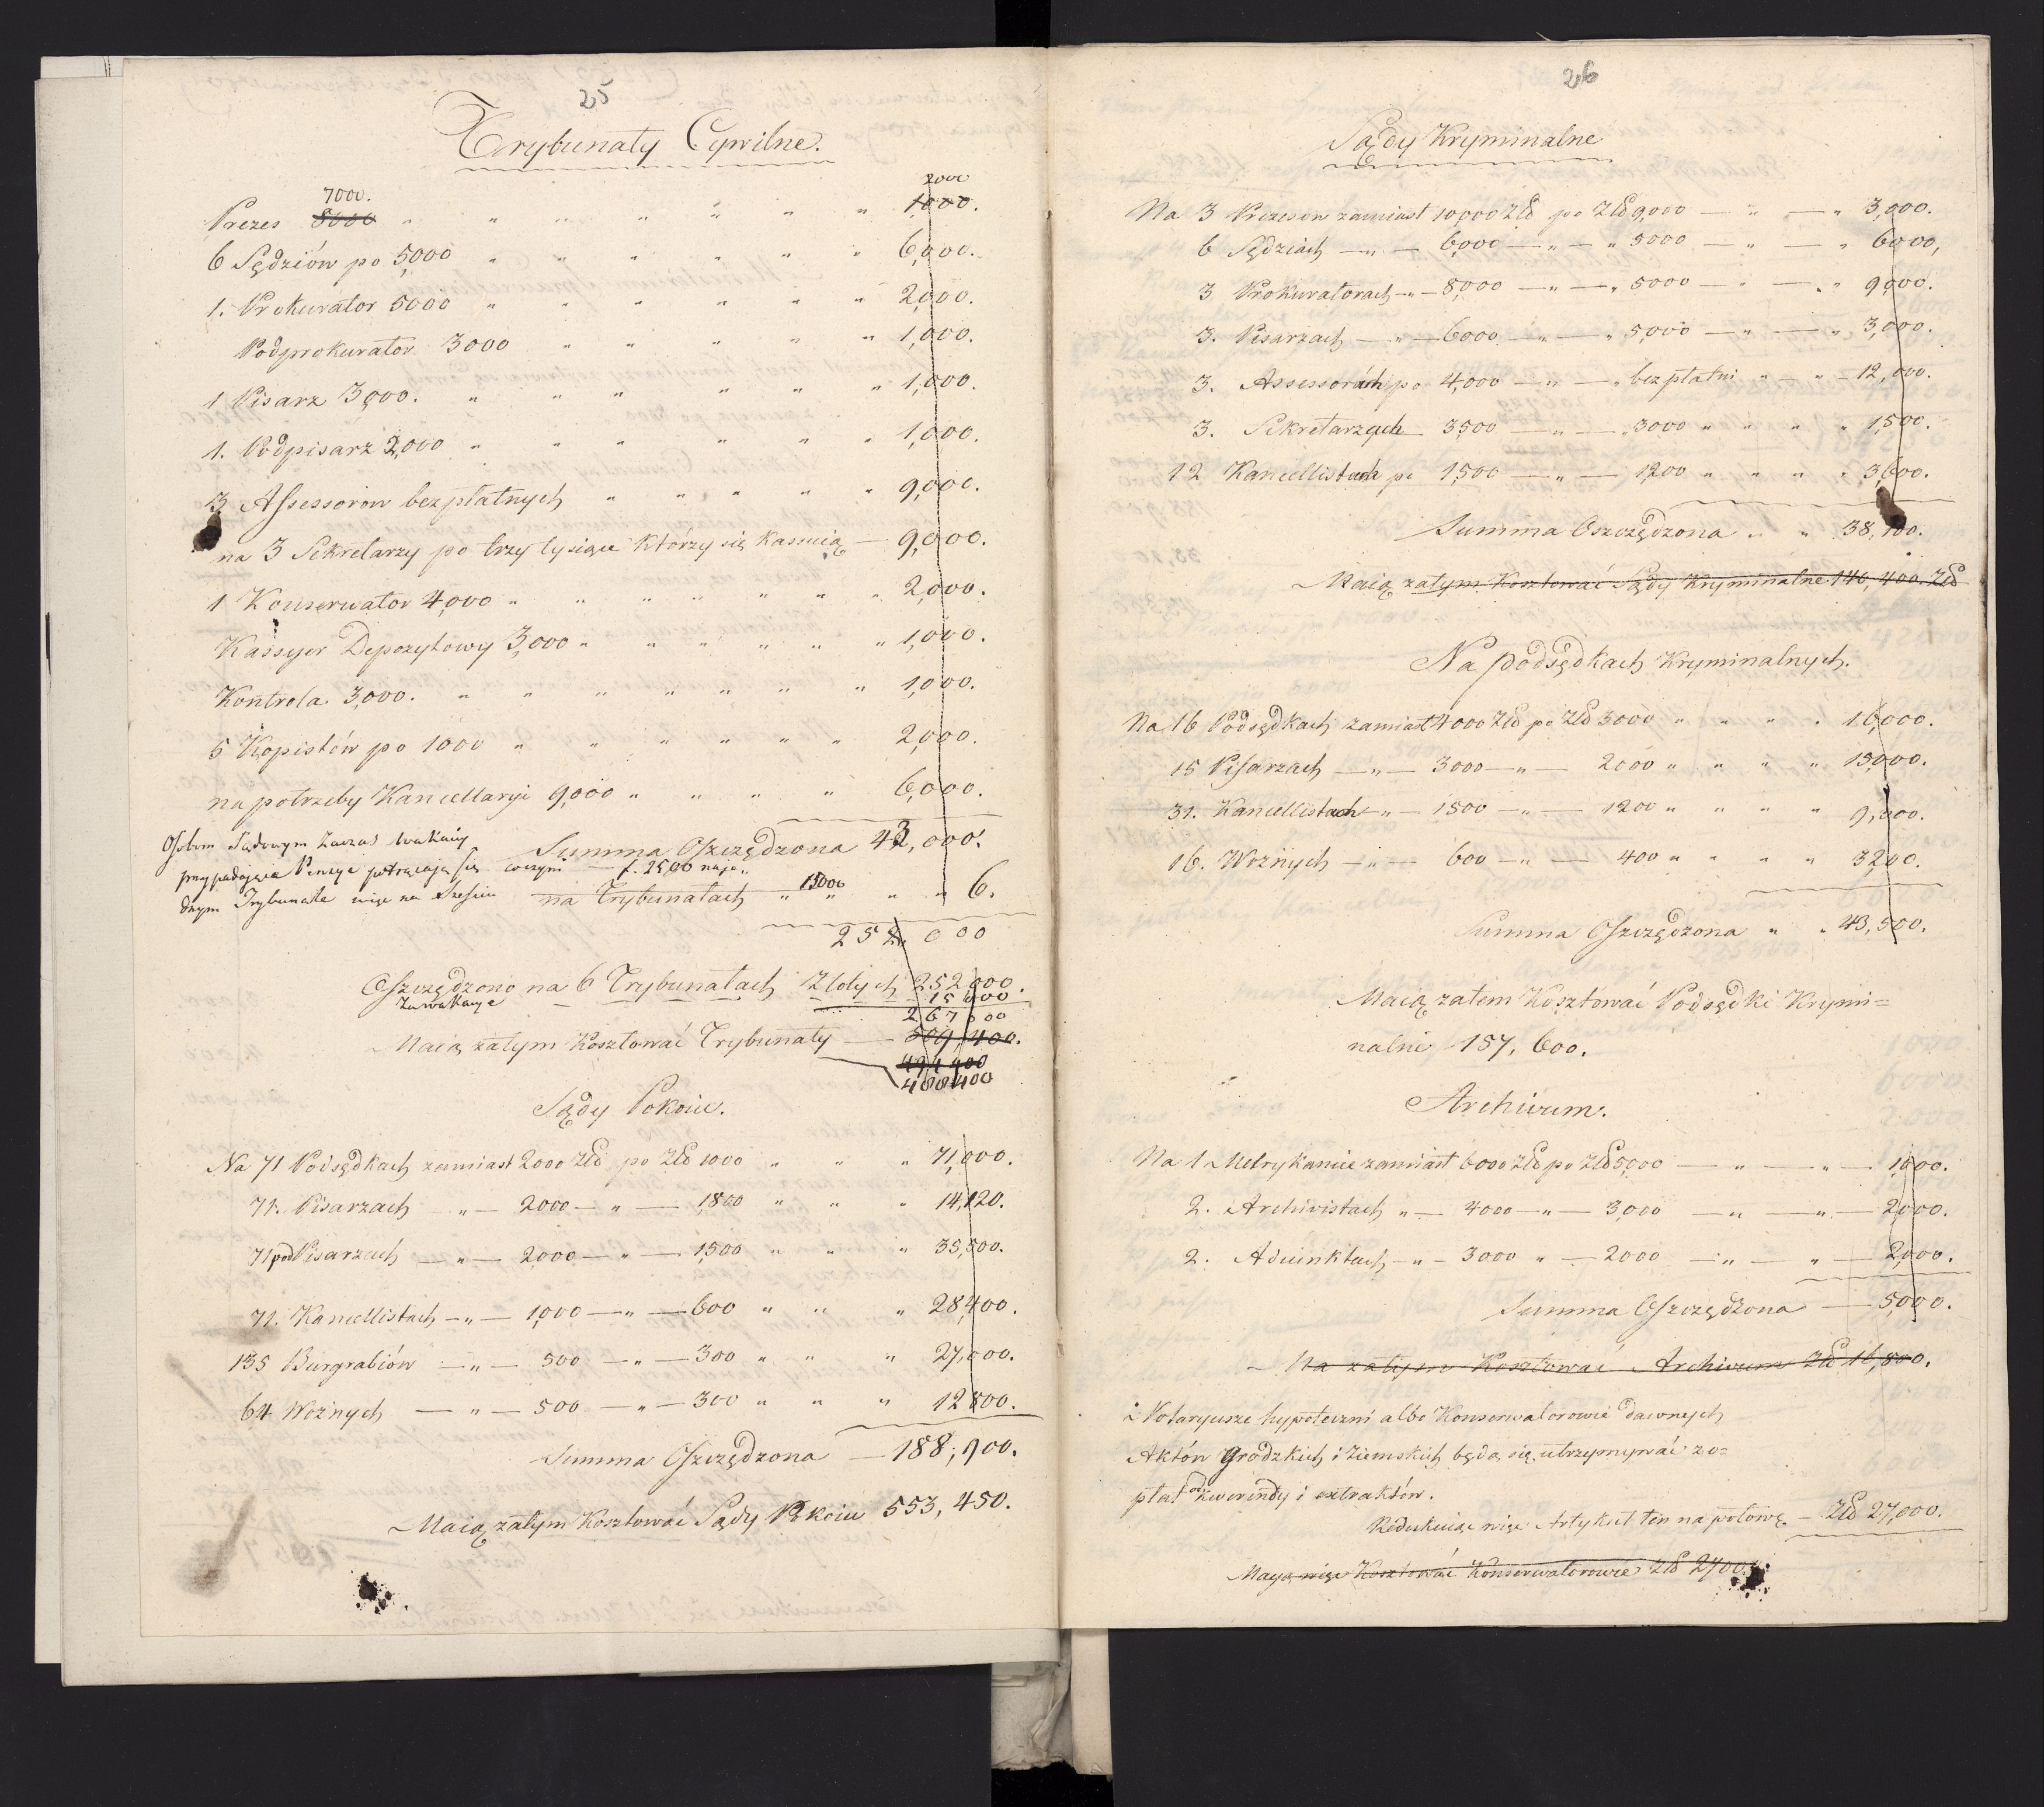 25
Trybunały Cywilne.
7000. 2000
Prezes 8000 " " " " " " " 1000.
6 Sędziów po 5,000 " " " " " " 6,000.
1. Prokurator 5000 " " " " " " 2,000.
Podprokurator 3000 " " " " " 1,000.
1 Pisarz 3,000. " " " " " " 1,000.
1. Podpisarz 2,000 " " " " " " 1,000.
3 Assessorów bezpłatnych " " " " " 9,000.
na 3 Sekretarzy po trzy tysiące którzy się kassuią — 9,000.
1 Konserwator 4,000 " " " " " " " 2,000.
Kassyer Depozytowy 3,000 " " " " " " 1,000.
Kontrola 3,000. " " " " " " " 1,000.
5 Kopistów po 1000 " " " " " " 2,000.
na potrzeby Kancellaryi 9,000 " " " " 6,000.
Summa Oszczędzona 42,000.
Osobom Sądowym zaczas wakany
przypadająca Pensye potrącają się czyni — f. 2500 na je„
dnym Trybunale więc na sześciu 15000
na Trybunałach " " " " 6.
252,000
Oszczędzono na 6 Trybunałach Złotych 252000.
Za wakanse 15000
267000
Maią zatym kosztować Trybunały — 509,400.
494400
488400
Sądy Pokoiu.
Na 71 Podsędkach zamiast 2000 Złł po Złł 1000 " " " 71,000.
71. Pisarzach — " — 2000 — " — 1,800 " " " 14,120.
71 podPisarzach — " — 2,000 — " — 1,500 " " " 35,500.
71. Kancellistach — " — 1,000 — " — 600 " " " 28,400.
135 Burgrabiów — " — 500 — " — 300 " " " 27,000.
64 Woźnych — " — 500 — " — 300 " " " 12800.
Summa Oszczędzona — 188,900.
Maią zatym kosztować Sądy Pokoiu 553,450.
26
Sądy Kryminalne
Na 3 Prezesów zamiast 10,000 Złł po Złł 9,000 — " — " 3,000.
6 Sędziach — " — 6,000 — " — " 5000 — " — " 6000,
3 Prokuratorach — " — 8,000 — " — " 5000 — " — " 9,000.
3. Pisarzach — " — 6000 — " — " 5,000 — " — " 3,000.
3. Assessorach po 4,000 — " — " bez płatni " — " — 12,000.
3. Sekretarzach 3,500 — " — 3000 " " " " 1,500.
12 Kancellistach po 1,500 — " — 1,200 " " " " 3,600.
Summa Oszczędzona " " 38,100.
Maią zatym kosztować Sądy Kryminalne 140,400. Złł
Na podsędkach Kryminalnych.
Na 16 Podsędkach zamiast 4000 Złł po Złł 3000 " " " " 16,000.
15 Pisarzach — " — 3000 — " — 2000 " " " " 15,000.
31. Kancellistach — " — 1,500 — " — 1200 " " " " 9,000.
16. Woźnych — " — 600 — " — 400 " " " " 3,200.
Summa Oszczędzona " " 43,500.
Maią zatem kosztować Podsędki Krymi=
nalne 157,600.
Archivum.
Na 1 Metrykancie zamiast 6000 Złł po Złł 5,000 — " — " — 1,000.
2. Archivistach " — 4000 — " — 3,000 — " — " — 2,000.
2. Adiunktach — " — 3000 " — 2000 — " — " — 2,000.
Summa Oszczędzona — 5,000.
Ma zatym kosztować Archivum Złł 16,800.
Notaryusze hypoteczni albo Konserwatorowie dawnych
Aktów Grodzkich i Ziemskich będą się utrzymywać z o=
płat od kwerendy i extraktów.
Redukuiąc więc Artykuł ten na połowę — Złł 27,000.
Maią więc kosztować Konserwatorowie Złł 2700